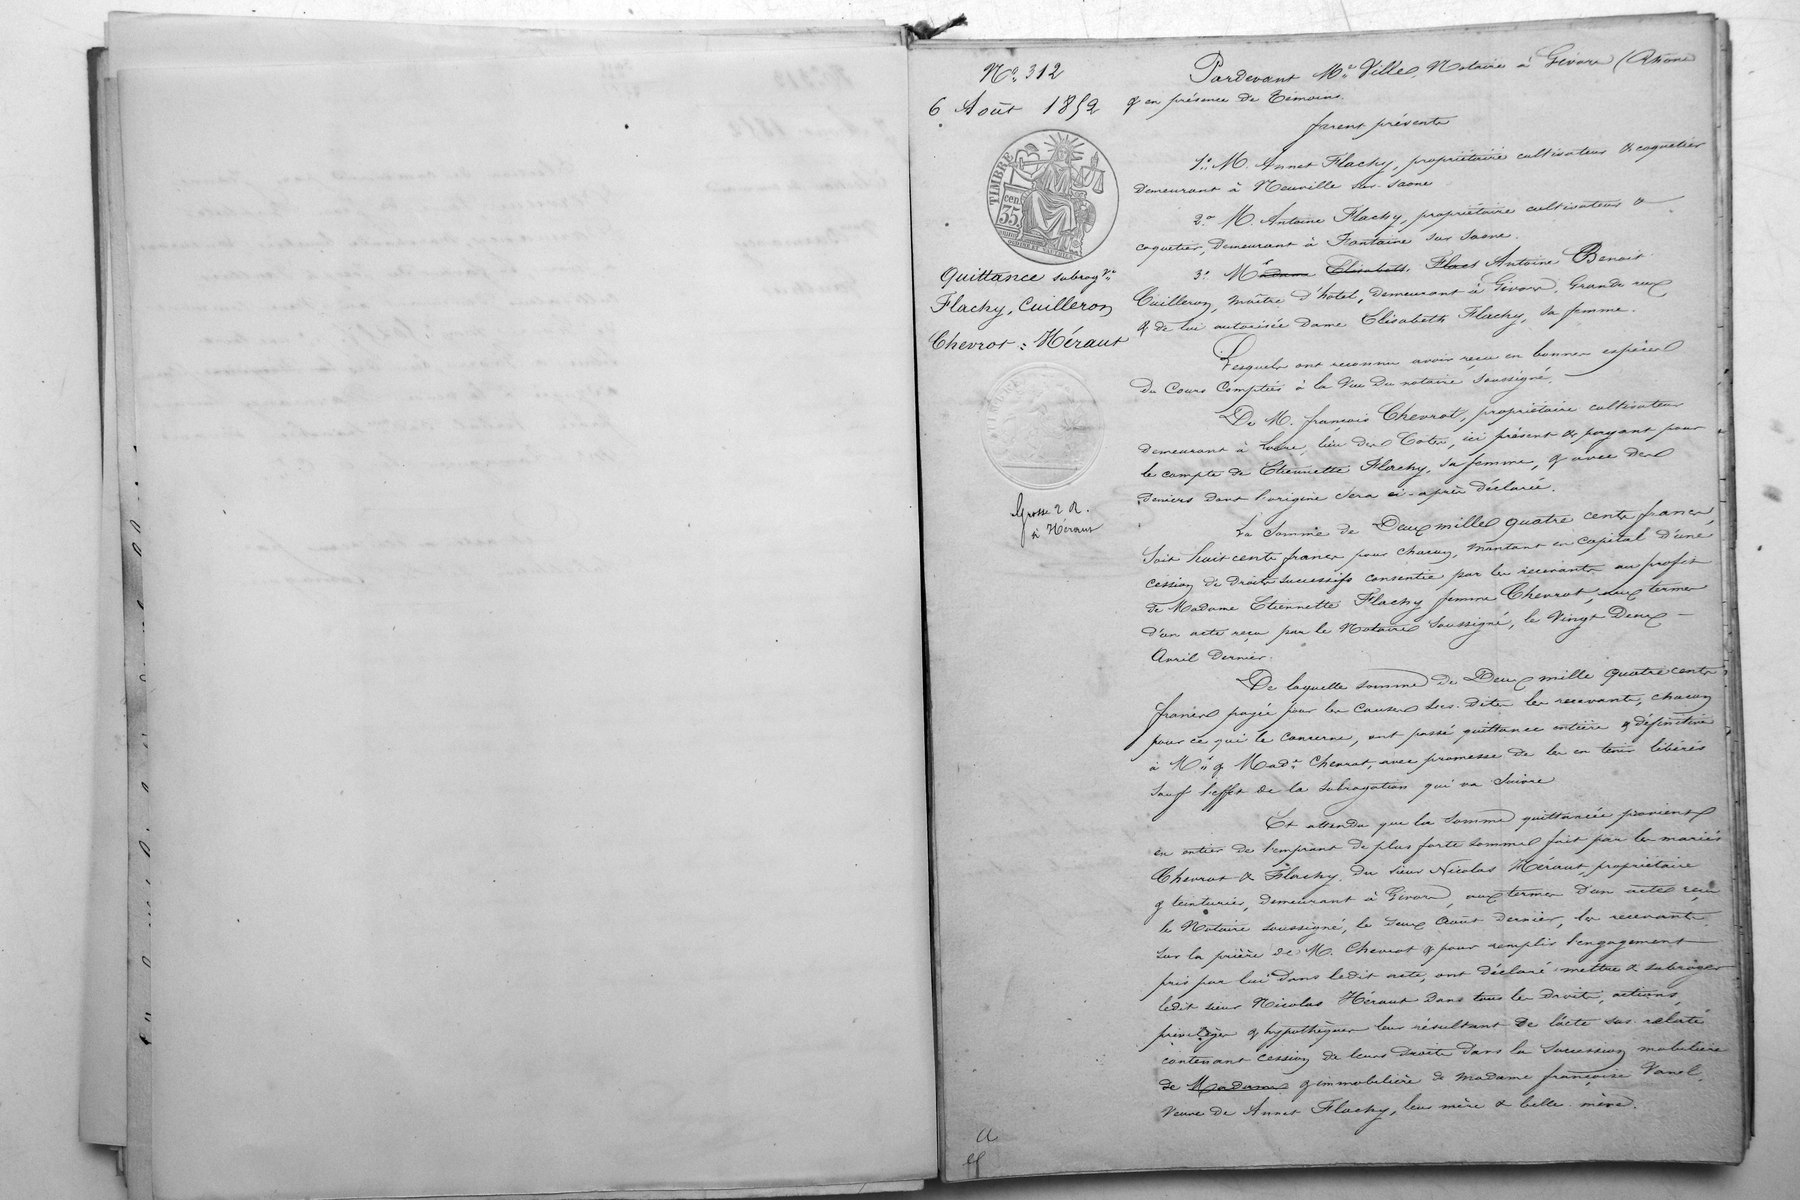 No. 312
6 Août 1852
TIMBRE
35 cen.
Quittance subrog.ve
Flachy, Cuilleron
Chevrot = Héraut
Grosse 2 R.
à Héraut
Pardevant Me. Villes, Notaire à Givors (Rhône
& en présence de témoins.
furent présents
1o. M. Annet Flachy, propriétaire cultivateur & coquetier
demeurant à Neuville sur Saone
2o M. Antoine Flachy, propriétaire cultivateur &
coquetier, demeurant à Fontaine sur Saone.
3o. Mr adame Elisabeth Flac Antoine Benoit
Cuilleron, maître d'hotel, demeurant à Givors, Grande rue
& de lui autorisée Dame Elisabeth Flachy, sa femme.
Lesquels ont reconnu avoir reçu en bonnes espèces
du cours comptées à la vue du notaire soussigné,
De M. françois Chevrot, propriétaire cultivateur
demeurant à Loire, lieu des Cotes, ici présent & payant pour
le compte de Etiennette Flachy, sa femme, & avec des
deniers dont l'origine sera ci-après déclarée.
La somme de Deux mille quatre cents francs,
soit huit cents francs pour chacun, montant en capital d'une
cession de droits successifs consentie par les recevants au profit
de Madame Etiennette Flachy femme Chevrot, aux termes
d'un acte reçu par le Notaire soussigné, le vingt Deux
Avril dernier.
De laquelle somme de Deux mille quatre cents
francs payée pour les causes sus-dites les recevants, chacun
pour ce qui le concerne, ont passé quittance entière & définitive
à Mr. & Made. Chevrot, avec promesse de les en tenir libérés
sauf l'effet de la subrogation qui va suivre
Et attendu que la somme quittancée provient
en entier de l'emprunt de plus forte somme fait par les mariés
Chevrot & Flachy, du sieur Nicolas Héraut, propriétaire
& teinturier, demeurant à Givors, aux termes d'un acte reçu
le Notaire soussigné, le deux Août dernier, les recevants
sur la prière de M. Chevrot & pour remplir l'engagement
pris par lui dans ledit acte, ont déclaré mettre & subroger
ledit sieur Nicolas Héraut dans tous les droits, actions,
privilèges & hypothèques leur résultant de l'acte sus-relaté
contenant cession de leurs droits dans la succession mobilière
de Madame & immobilière de madame françoise Vanel,
veuve de Annet Flachy, leur mère & belle-mère.